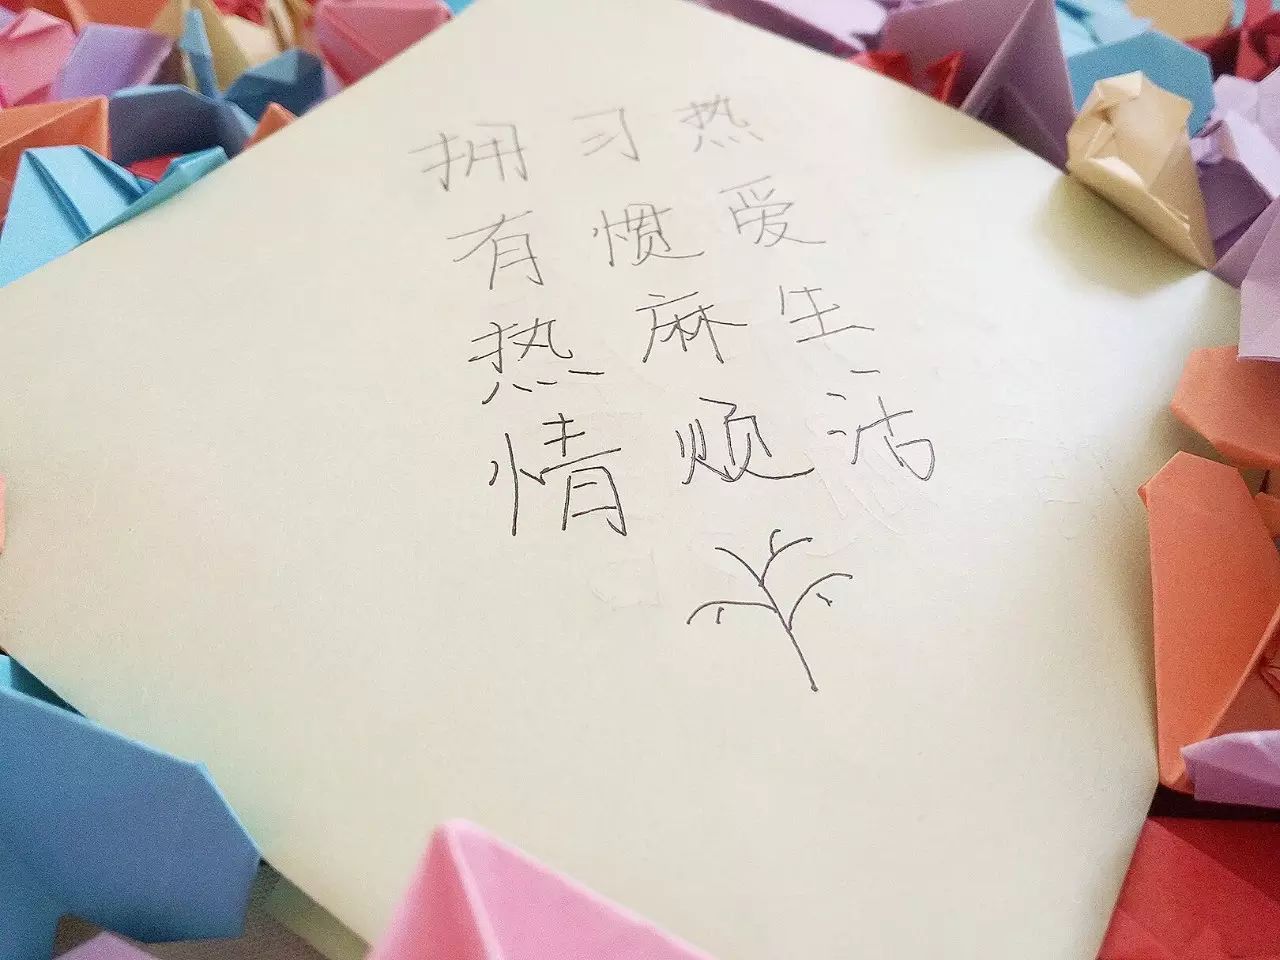 热爱生活
习惯麻烦
拥有热情